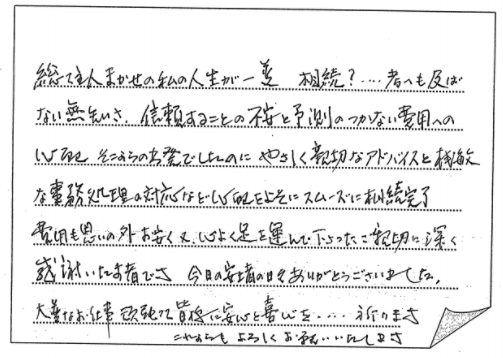 総て主人まかせの私の人生が一変 相続?‥‥考へも及ば
ない無知さ、信頼することの不安と予測のつかない費用への
心配 そこからの出発でしたのに やさしく親切なアドバイスと機敏
な事務処理の対応など心配をよそにスムーズに相続完了
費用も思いの外お安く又、心よく足を運んで下さったご親切に深く
感謝いたす者です 今日の安堵の日々ありがとうございました。
大変なお仕事 頑張って皆様に安心と喜びを‥‥祈ります
これからも よろしくお願いいたします